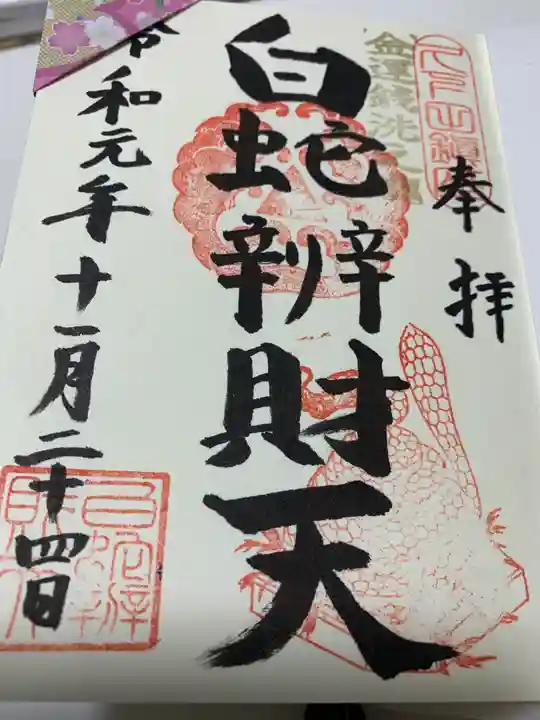 奉拝
金運銭洗之
白蛇辨財天
令和元年十一月二十四日